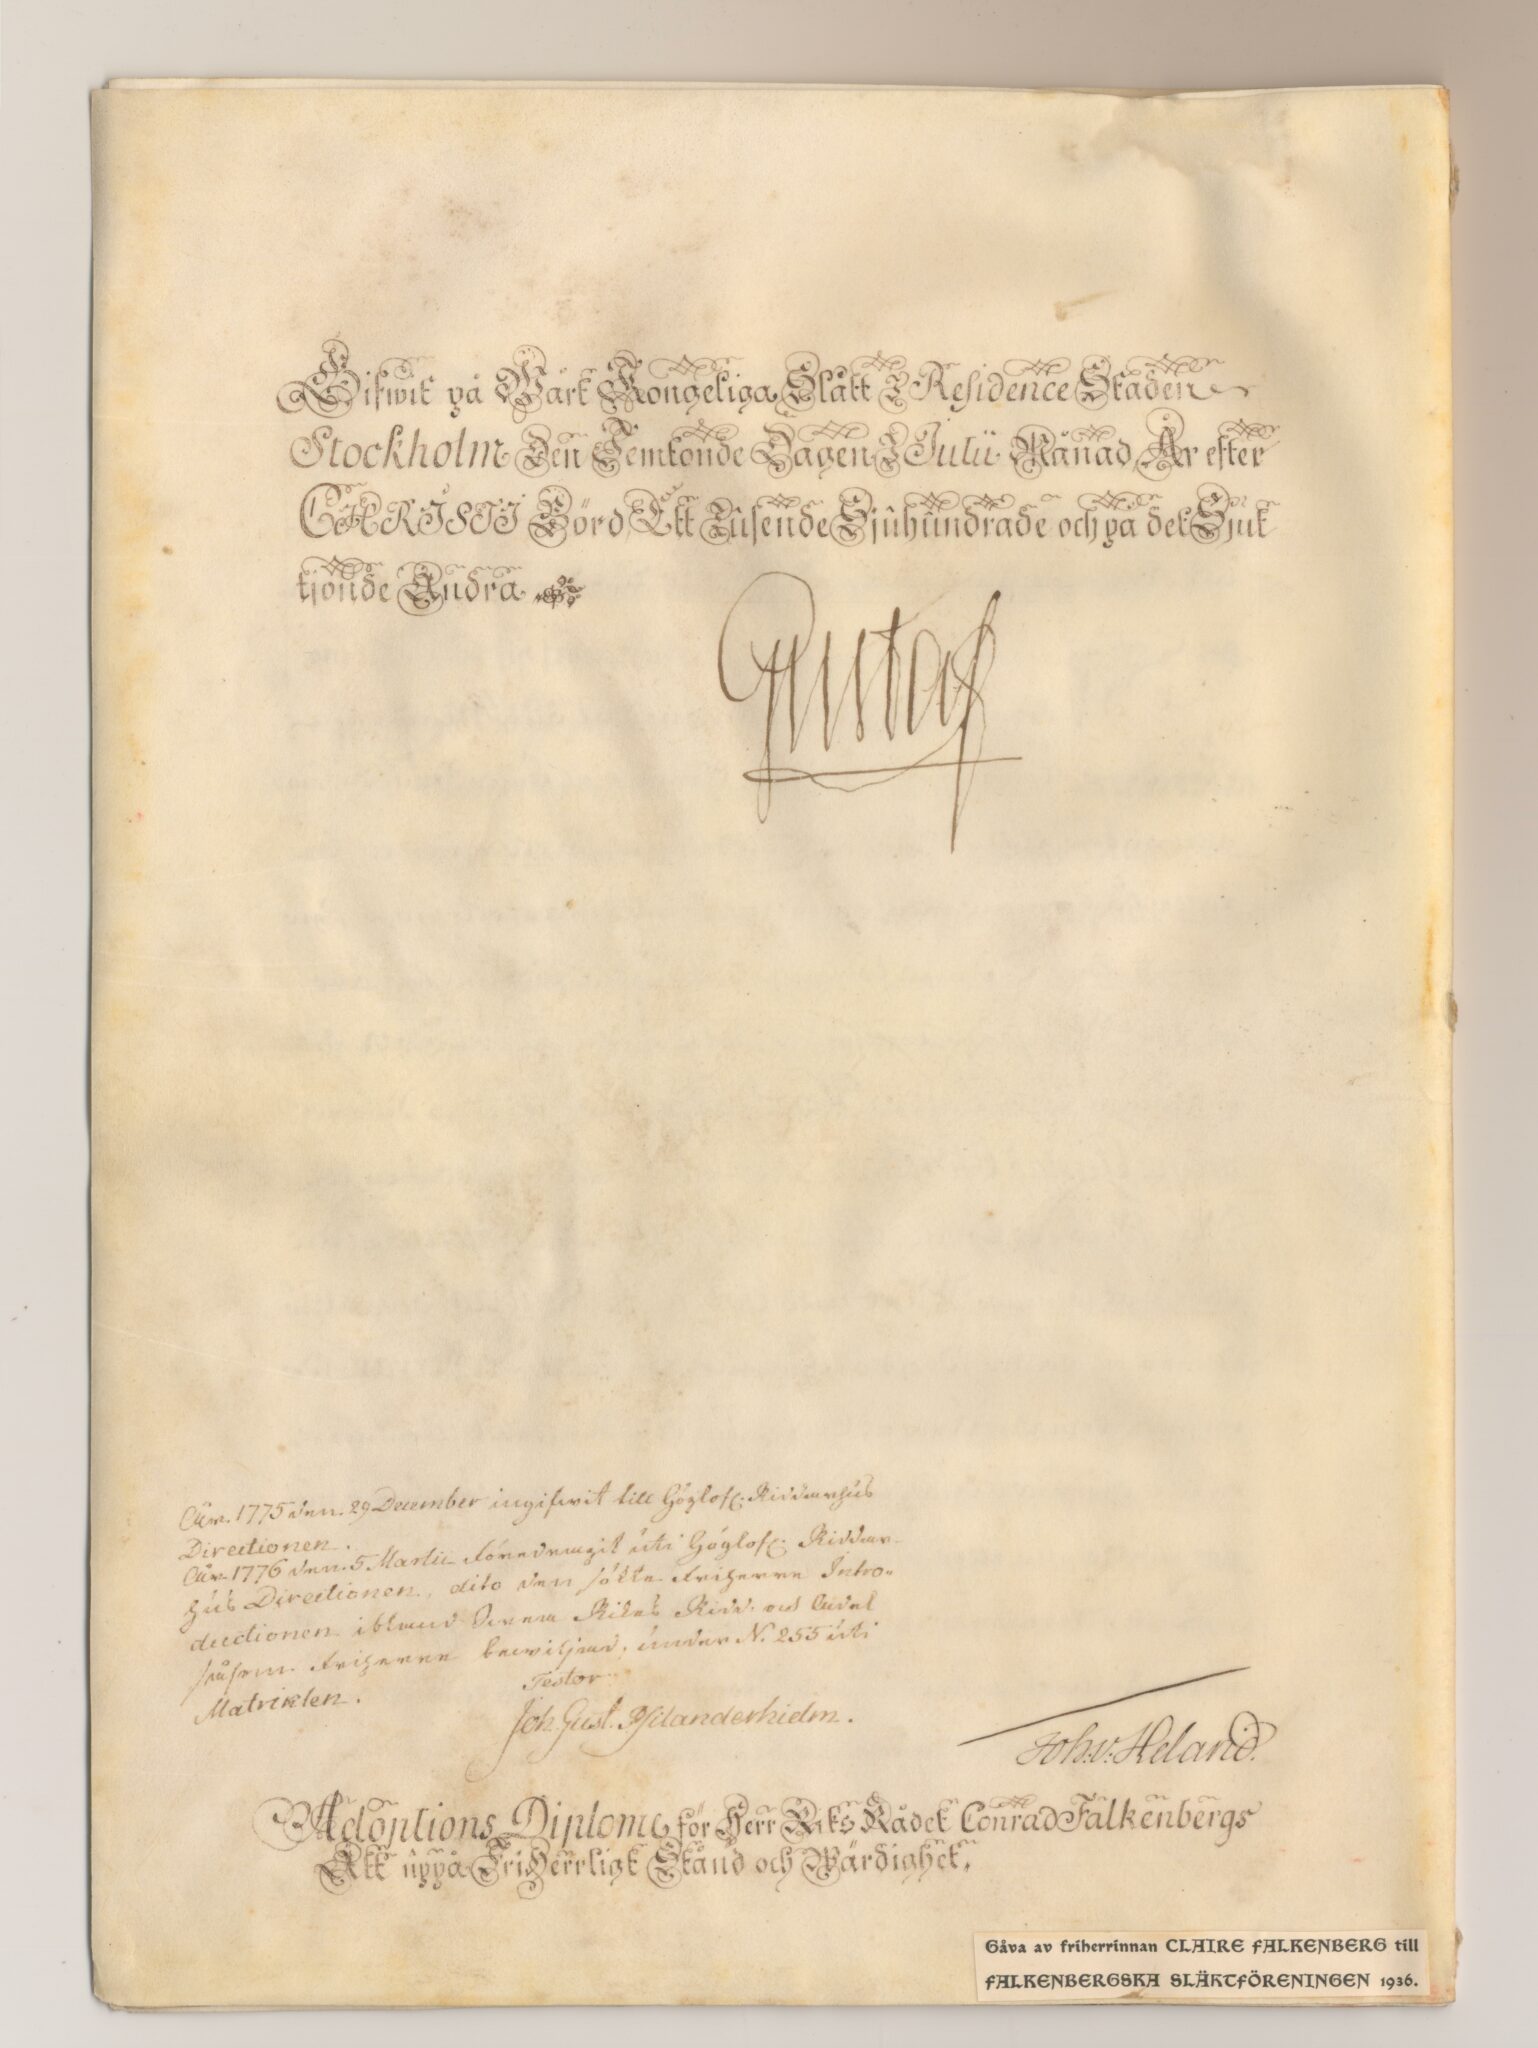 Gifwit på Wårt Kongeliga Slått I Residence Staden
Stockholm Den Femtonde Dagen I Julii Månad År efter
CHRISTI Börd, Ett Tûsende Sjûhûndrade och på det Sjut
tjonde Andra
Gustaf
Åhr. 1775 den. 29 December ingifwit till Höglofl: Riddarhûs
Directionen.
Åhr. 1776 den. 5 Martii föredragit ûti Höglofl: Riddar-
hûs Directionen, dito den sökte Friherre Intro-
ductionen ibland Swea Rikes Ridd. och Adel
såsom Friherre bewiljad, ûnder N. 255 ûti
Matriklen.
Testor
Joh. Gust. Psilanderhielm.
Joh: v: Heland.
Adoptions Diplome för Herr Riks Rådet Conrad Falkenbergs
Ätt ûppå FriHerrligt Stånd och Wärdighet.
Gåva av friherrinnan CLAIRE FALKENBERG till
FALKENBERGSKA SLÄKTFÖRENINGEN 1936.